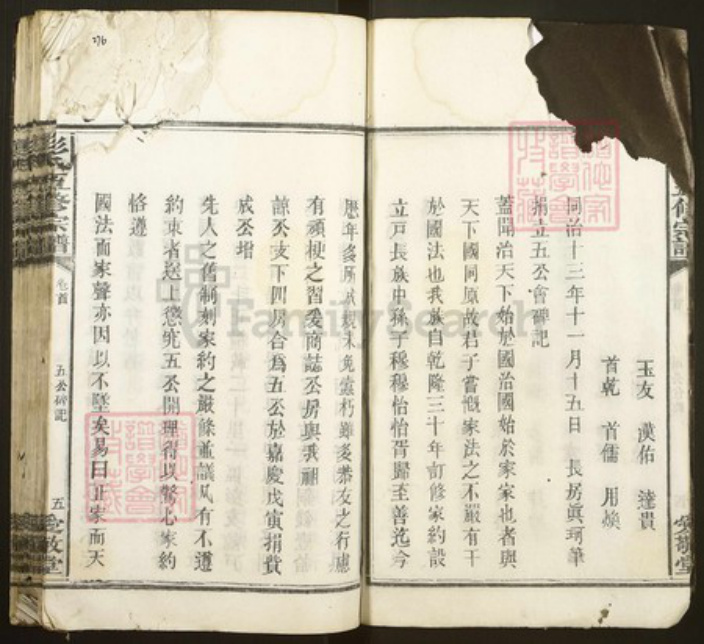 玉友 漢佑 達貴
首乾 首儒 用煥
同治十三年十一月十五日 長房眞珂筆
捐立五公會碑記
蓋聞治天下始於國治國始於家家也者與
天下國同原故君子嘗慨家法之不嚴有干
於國法也我族自乾隆三十年訂修家約設
立戸長族中孫子穆穆怡怡胥歸至善迄今
歷年多所成規未免蠧朽雖多恭友之行慮
有頑梗之習爰商誌公房與我祖
諒公支下四房合爲五公於嘉慶戊寅捐費
成公增
先人之舊制刻家約之嚴條並議凡有不遵
約束者送上懲究五公開理得以齊心家約
恪遵
國法而家聲亦因以不墜矣易曰正家而天
彭氏五修宗譜 卷首 五公碑記 五 全敬堂
五修宗譜
敬堂
FamilySearch